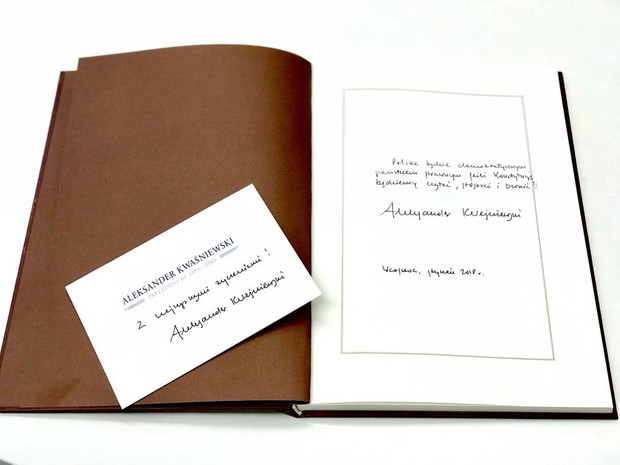 ALEKSANDER KWAŚNIEWSKI
PREZYDENT RP 1995 - 2005
Z najlepszymi życzeniami!
Aleksander Kwaśniewski
Polska będzie demokratycznym
państwem prawnym jeśli Konstytucję
będziemy czytać, stosować i bronić!
Aleksander Kwaśniewski
Warszawa, styczeń 2018 r.